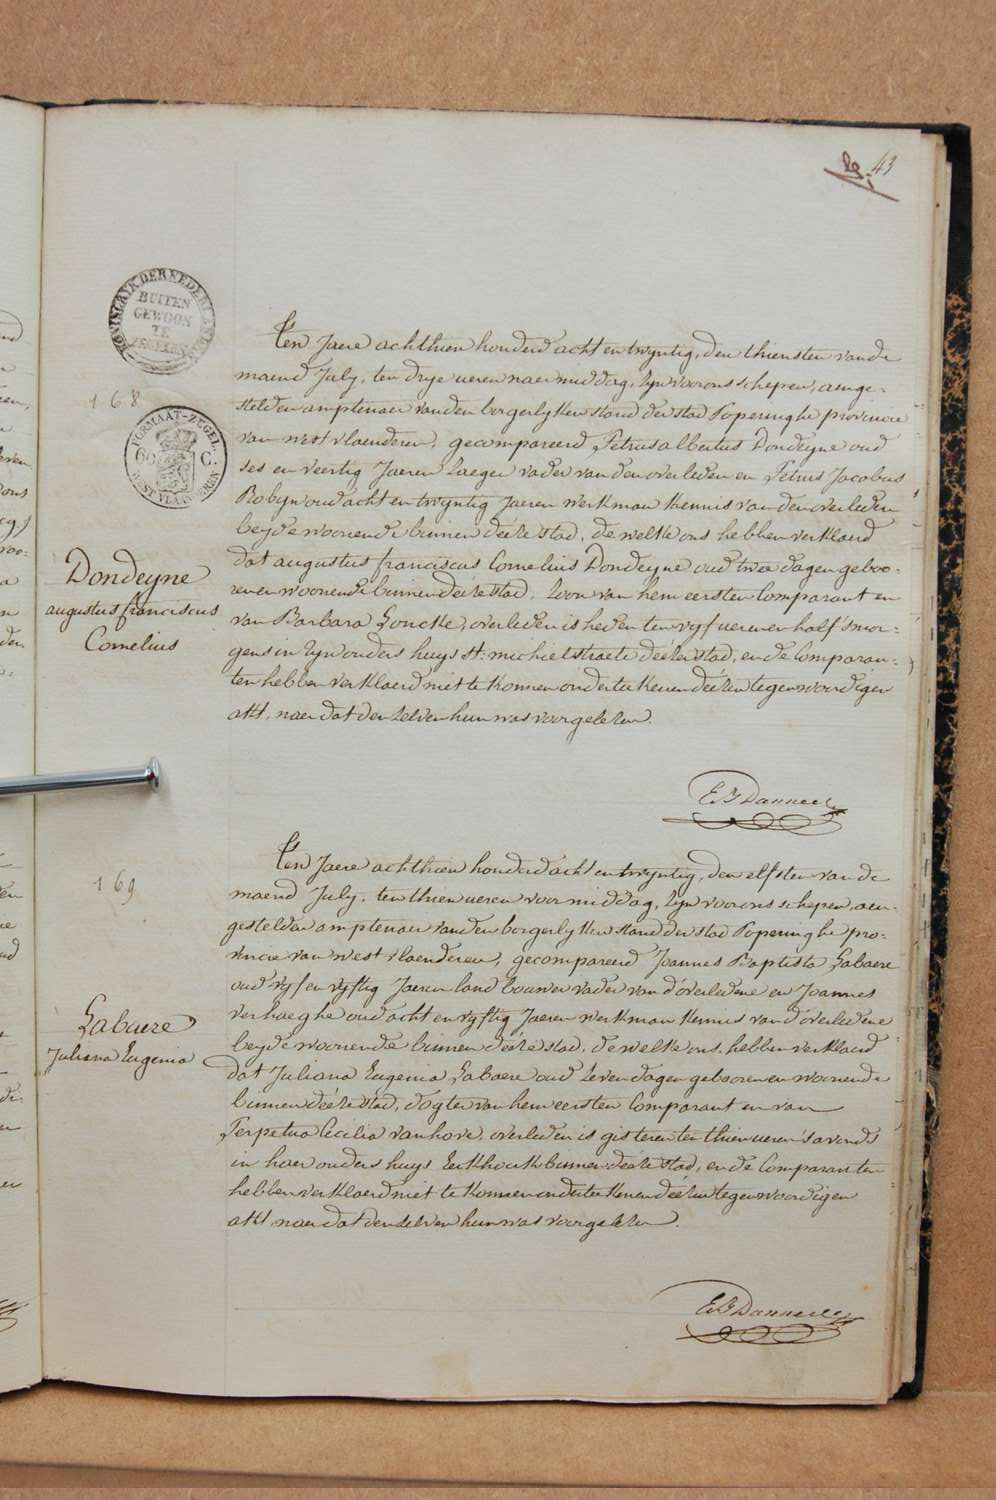 43
KONINGRYK DER NEDERLANDEN
BUITEN
GEWOON
TE
ZEGELEN
168
FORMAAT-ZEGEL
60 C.
WEST VLAANDEREN
Ten Jaere achthien honderd acht en twyntig, den thiensten van de
maend July, ten drye ueren naer middag, zyn voor ons schepen, aenge-
stelden amptenaer van den borgerlyken stand der stad Poperinghe provincie
van westvlaenderen, gecompareerd Petrus albertus Dondeyne oud
ses en veertig Jaeren Zaeger vader van den overleden en Petrus Jacobus
Robyn oud acht en twyntig Jaeren werkman kennis van den overleden
beyde woonende binnen deéze stad, de welke ons hebben verklaerd
dat augustus franciscus Cornelius Dondeyne oud twee dagen geboo-
ren en woonende binnen deéze stad, Zoon van hem eersten Comparant en
van Barbara Goucke, overleden is heden ten vyf ueren en half smor-
gens in zyn ouders huys st: michiel straete deéler stad, en de Comparan-
ten hebben verklaerd niet te konnen onderteekenen deézen tegenwoordigen
akt, naer dat den zelven hun was voorgelezen.
Dondeyne
augustus franciscus
Cornelius
E J Danneel
169
Ten Jaere achthien honderd acht en twyntig, den elfsten van de
maend July, ten thien ueren voor middag, zyn voor ons schepen, aen-
gestelden amptenaer van den borgerlyken stand der stad Poperinghe pro-
vincie van westvlaenderen, gecompareerd Joannes Baptista Labaere
oud vyf en vyftig Jaeren landbouwer vader van d'overledene en Joannes
verhaeghe oud acht en vyftig Jaeren werkman kennis van d'overledene
beyde woonende binnen deéze stad, de welke ons hebben verklaerd
dat Juliana Eugenia Labaere oud zeven dagen geboren en woonende
binnen deéze stad, dogter van hem eersten Comparant en van
Perpetua Cecilia vanhove, overleden is gisteren ten thien ueren s'avonds
in haer ouders huys Eekhoek binnen deéze stad, en de Comparanten
hebben verklaerd niet te konnen onderteekenen deézen tegenwoordigen
akt naer dat den zelven hun was voorgelezen.
Labaere
Juliana Eugenia
E J Danneel